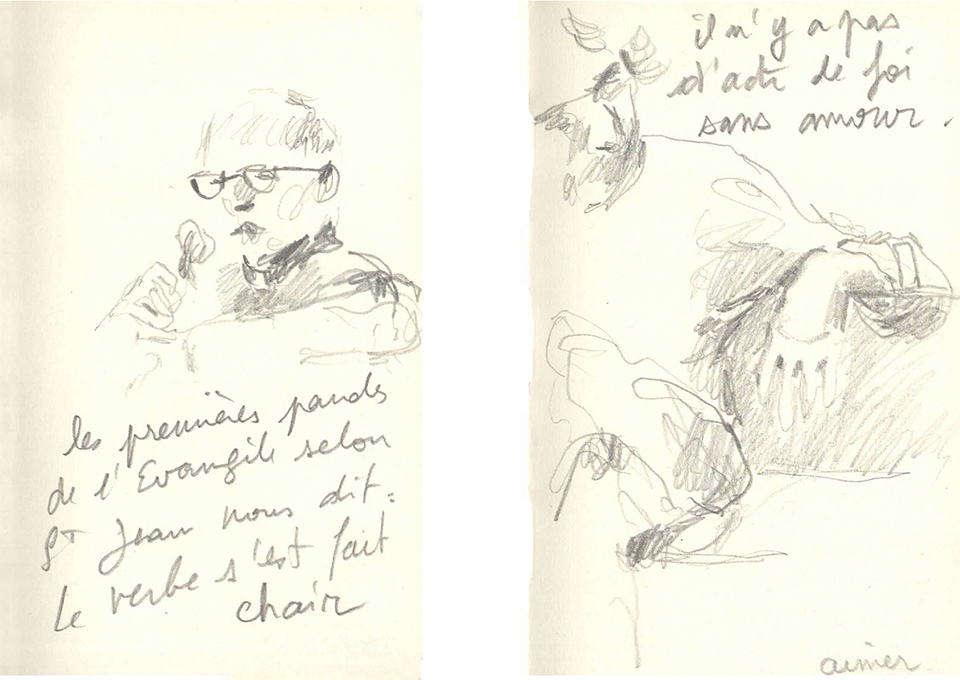 les premières paroles
de l'Evangile selon
St Jean nous dit :
Le verbe s'est fait
chair
il n'y a pas
d'acte de foi
sans amour.
aimer